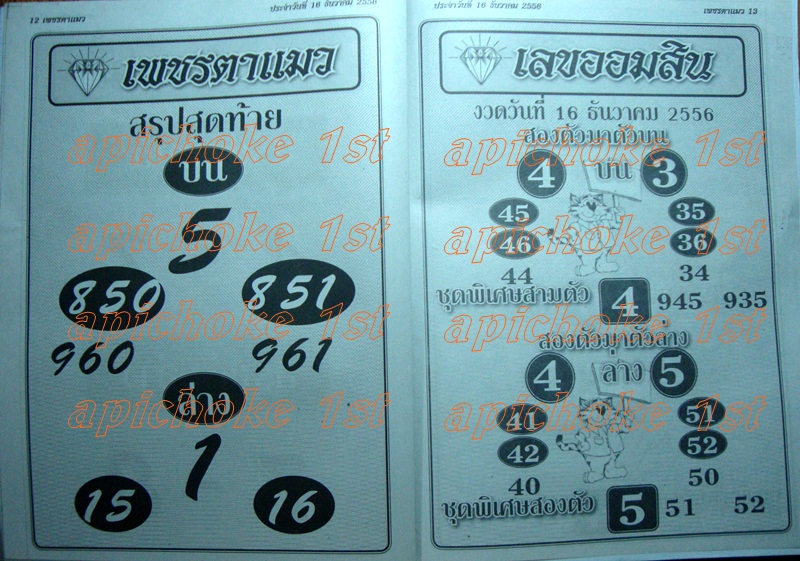 12 เพชรตาแมว
ประจำวันที่ 16 ธันวาคม 2556
เพชรตาแมว
สรุปสุดท้าย
บน
5
850 851
960 961
ล่าง
1
15 16
ประจำวันที่ 16 ธันวาคม 2556
เพชรตาแมว 13
เลขออมสิน
งวดวันที่ 16 ธันวาคม 2556
สองตัวมาตัวบน
4 บน 3
45 35
46 36
44 34
ชุดพิเศษสามตัว 4 945 935
สองตัวมาตัวล่าง
4 ล่าง 5
41 51
42 52
40 50
ชุดพิเศษสองตัว 5 51 52
apichoke 1st apichoke 1st
apichoke 1st apichoke 1st
apichoke 1st apichoke 1st
apichoke 1st apichoke 1st